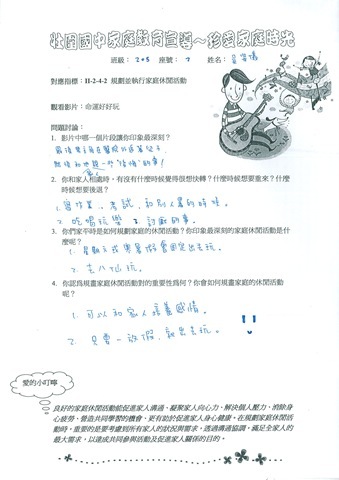 壯圍國中家庭教育宣導～珍愛家庭時光
班級： 205 座號： 7 姓名：
對應指標：II-2-4-2 規劃並執行家庭休閒活動
觀看影片：命運好好玩
問題討論：
1. 影片中哪一個片段讓你印象最深刻？
最後男主角在醫院外
2. 你和家人相處時，有沒有什麼時候覺得很想快轉？什麼時候想要重來？什麼
時候想要後退？
1. 寫作業、考試，和別人差的時候。
2. 吃喝玩樂
3. 你們家平時是如何規劃家庭的休閒活動？你印象最深刻的家庭休閒活動是什
麼呢？
1. 星期六或寒暑假會固定出去玩。
2. 去八仙玩。
4. 你認為規畫家庭休閒活動對的重要性為何？你會如何規畫家庭休閒活動
呢？
1. 可以和家人培養感情。
2. 只要一放假，就出去玩。
!!
愛的小叮嚀
良好的家庭休閒活動能促進家人溝通、凝聚家人向心力、解決個人壓力、消除身
心疲勞、營造共同學習的機會，更有助於促進家人身心健康。在規劃家庭休閒活
動時，重要的是要考慮到所有家人的狀況與需求，透過溝通協調，滿足全家人的
最大需求，以達成共同參與活動及促進家人關係的目的。